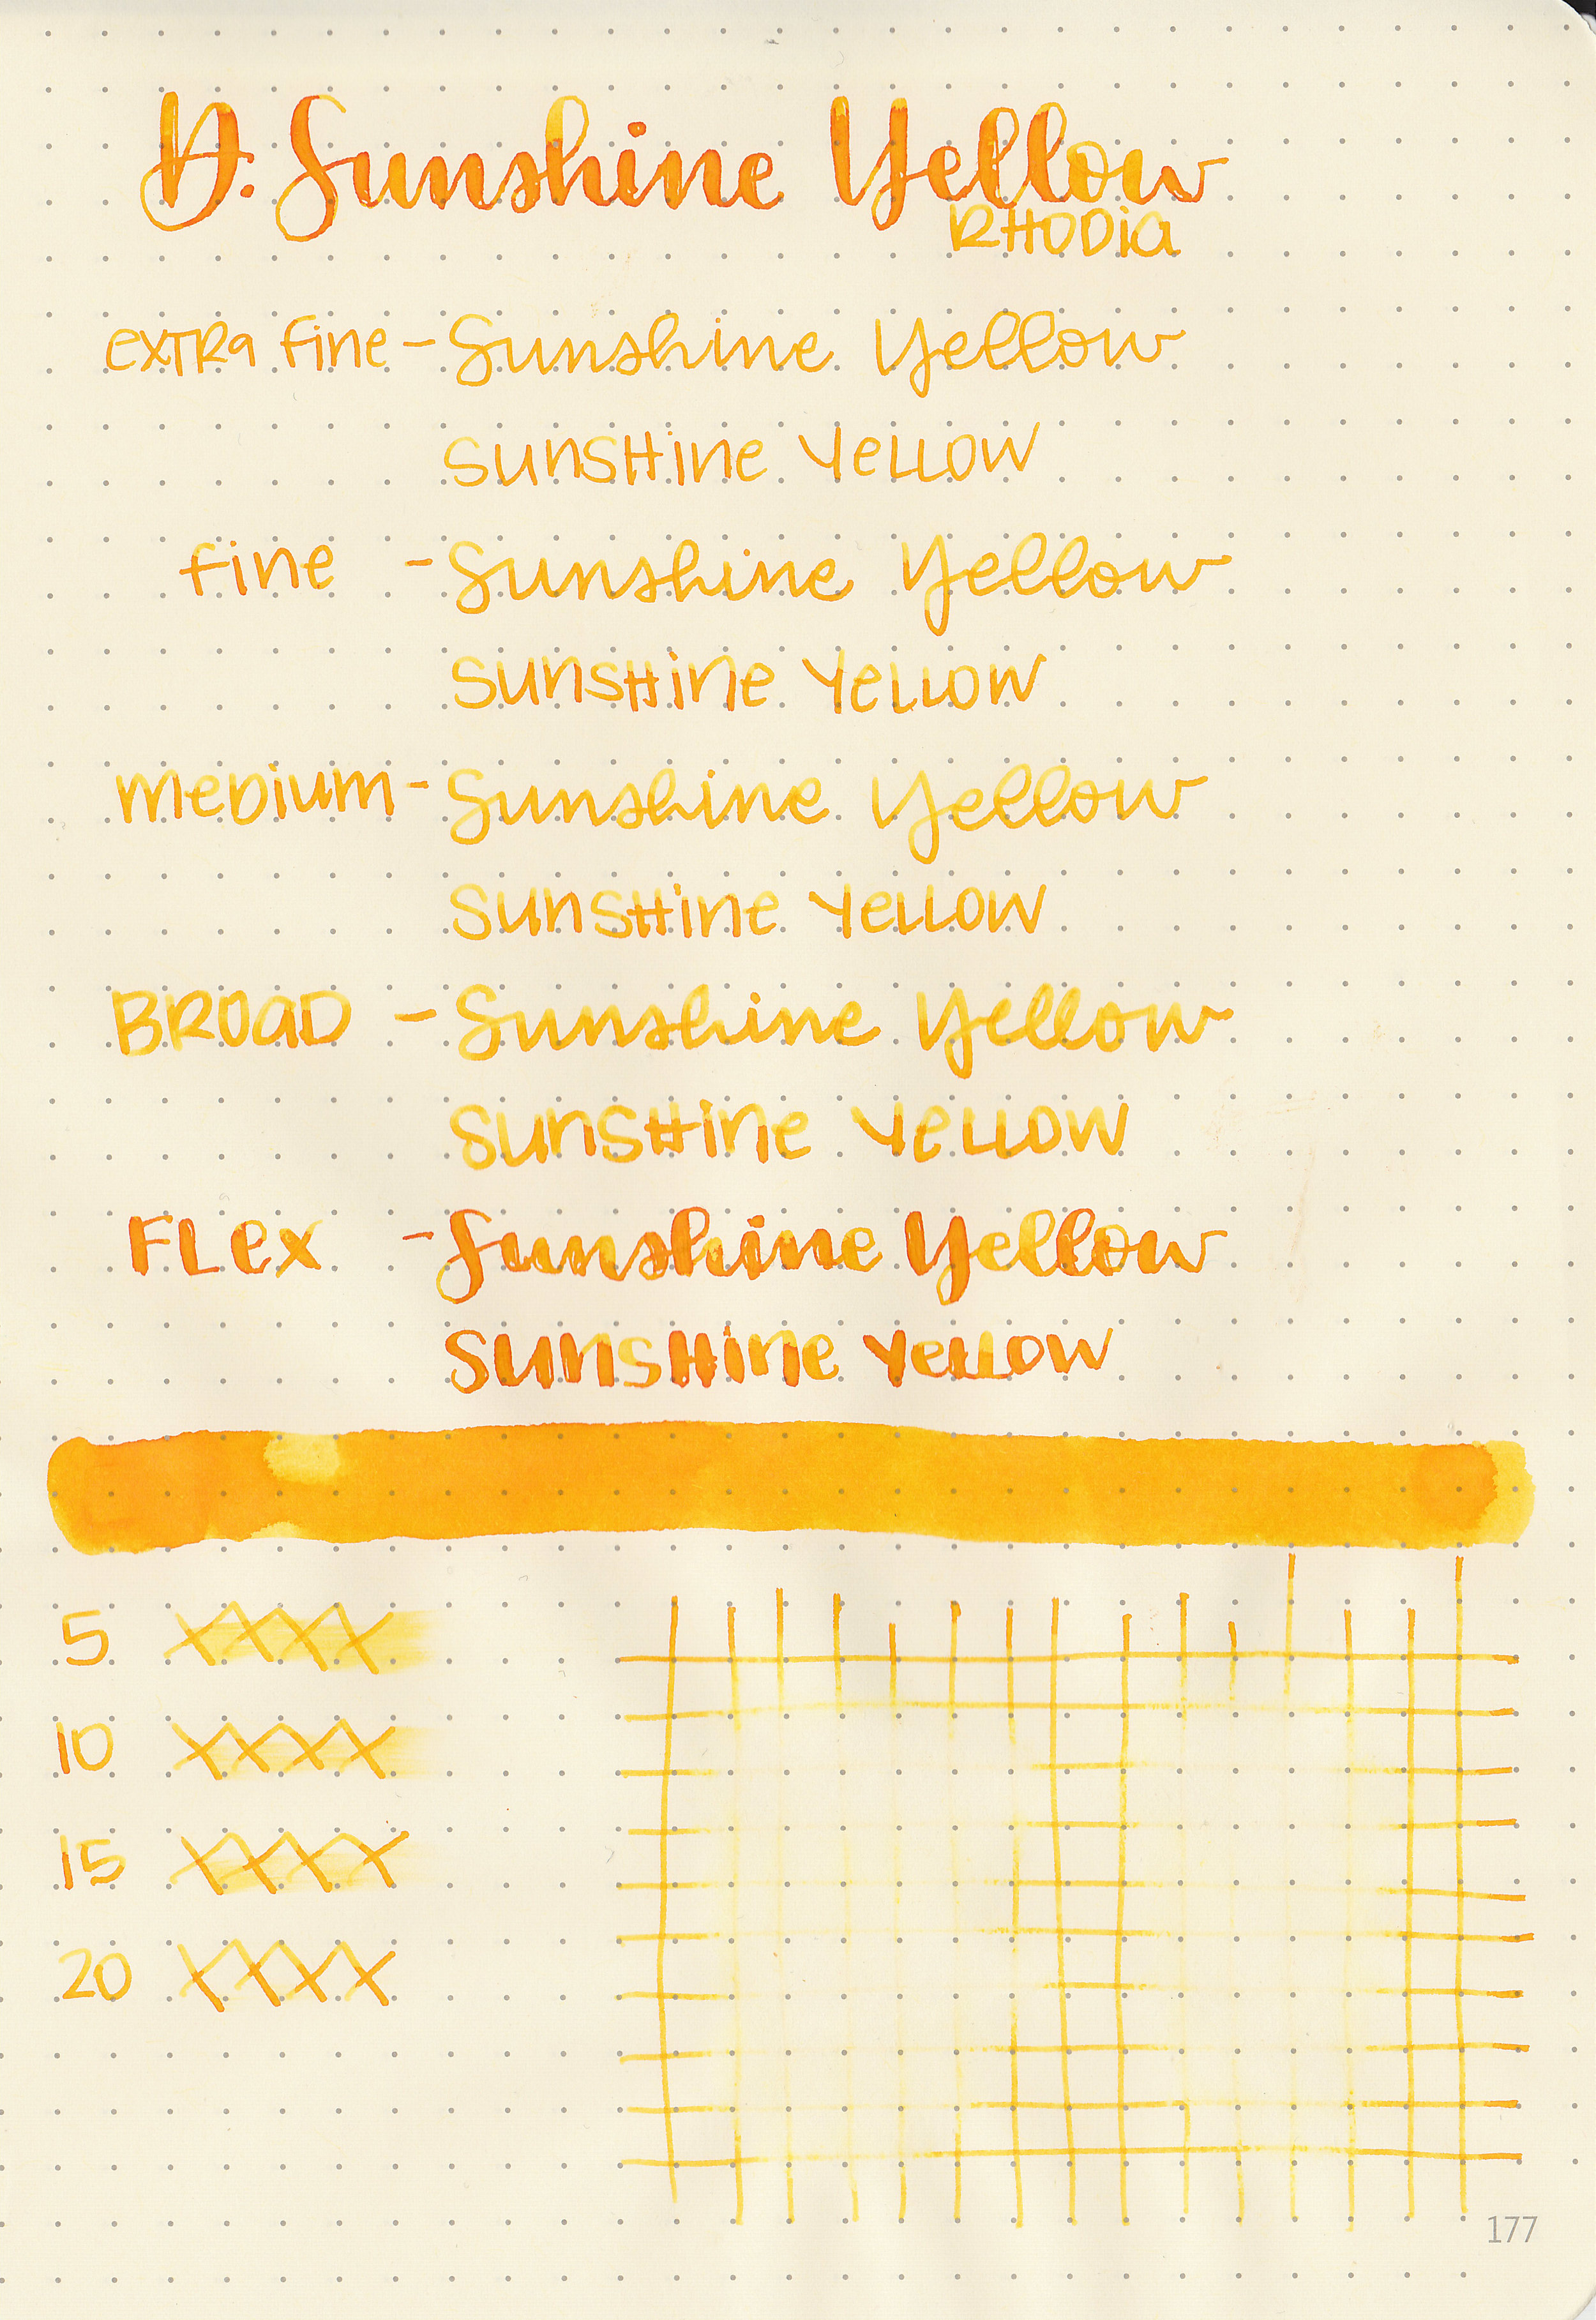 D. Sunshine Yellow
RHODia
extra fine - Sunshine Yellow
SunSHine YeLLOW
fine - Sunshine Yellow
SunSHine YeLLOW
meDium - Sunshine Yellow
SunSHine YeLLOW
BROaD - Sunshine Yellow
SunSHine YeLLOW
FLex - Sunshine Yellow
SunSHine YeLLOW
5 XXXX
10 XXXX
15 XXXX
20 XXXX
177